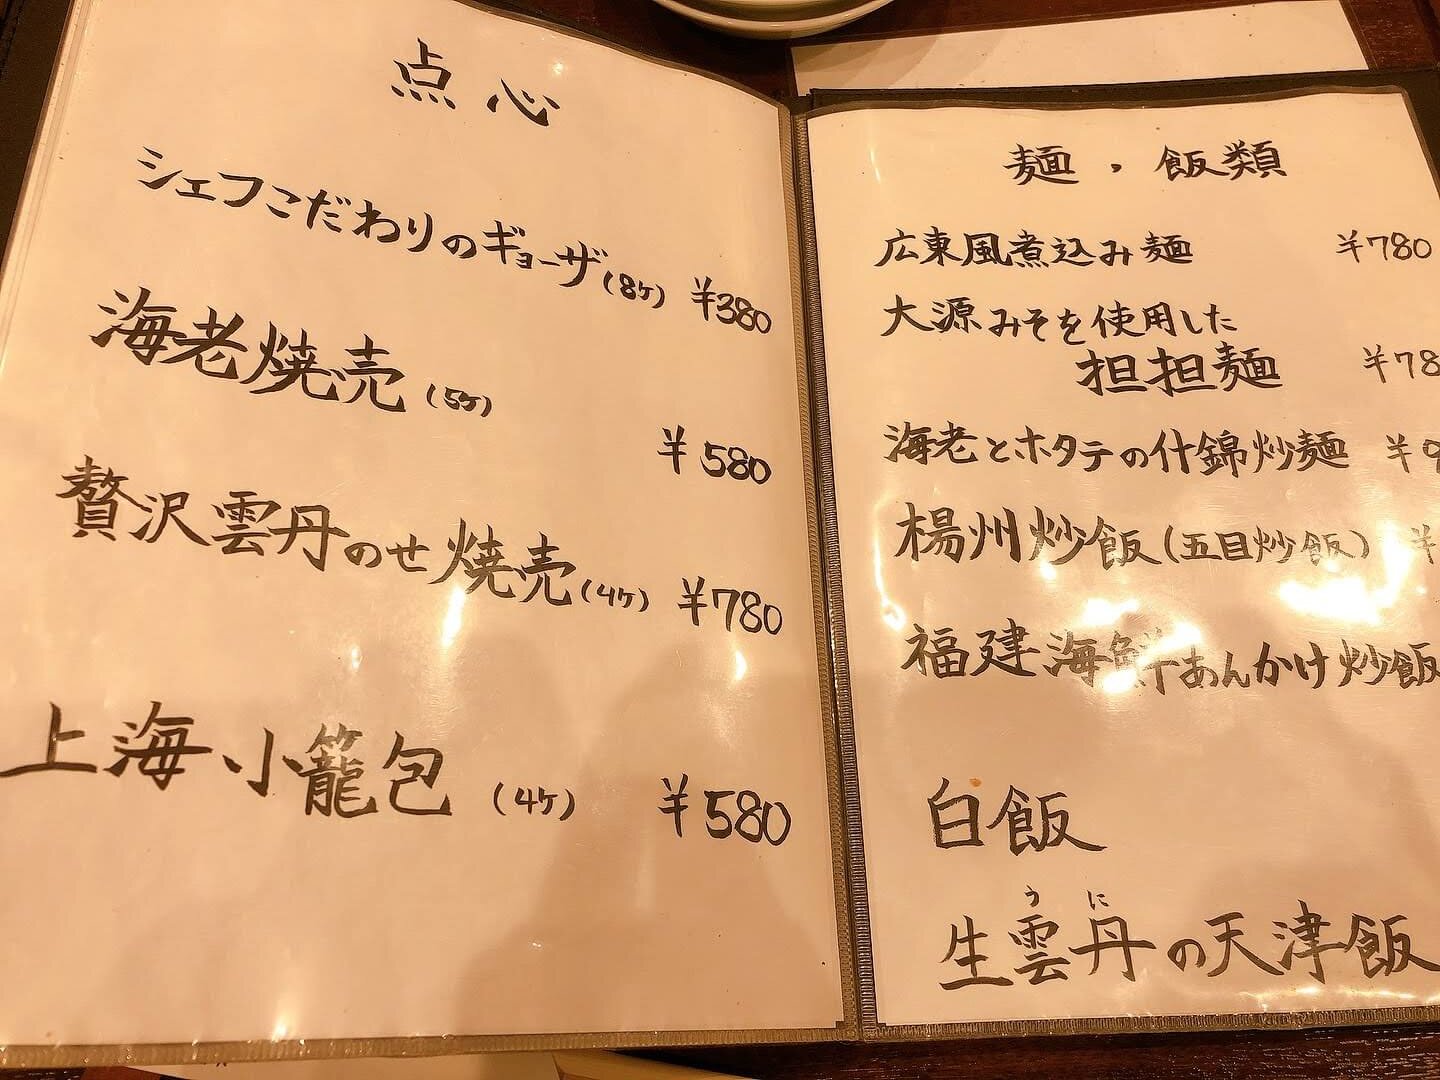 点心
シェフこだわりのギョーザ(8ケ) ¥380
海老焼売(5ケ)
¥580
贅沢雲丹のせ焼売(4ケ) ¥780
上海小籠包(4ケ) ¥580
麺,飯類
広東風煮込み麺 ¥780
大源みそを使用した
担担麺 ¥78
海老とホタテの什錦炒麺 ¥9
楊州炒飯(五目炒飯) ¥
福建海鮮あんかけ炒飯
白飯
うに
生雲丹の天津飯